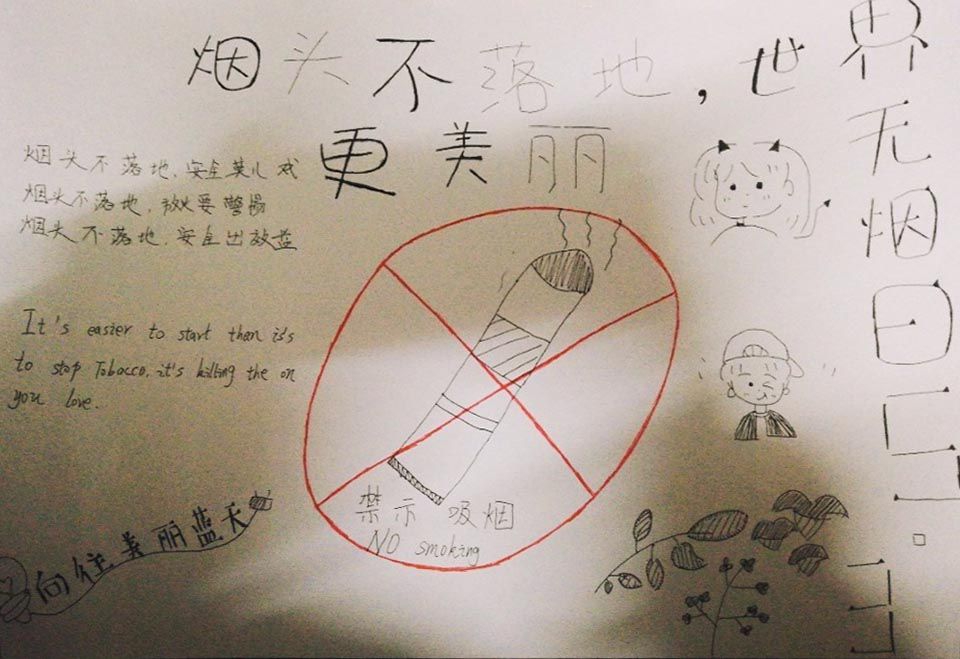 烟头不落地,世
更美丽
世界无烟日
烟头不落地,安全莫儿戏
烟头不落地,放火要警惕
烟头不落地,安全出效益
It's easier to start than is's
to stop Tobacco. it's killing the on
you love.
禁示吸烟
NO smoking
向往美丽蓝天